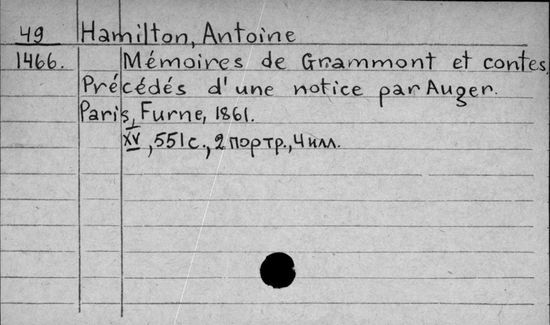 49 Hamilton, Antoine
1466. Mémoires de Grammont et contes.
Précédés d'une notice par Auger.
Paris, Furne, 1861.
XV, 551 с., 2 портр., 4 илл.